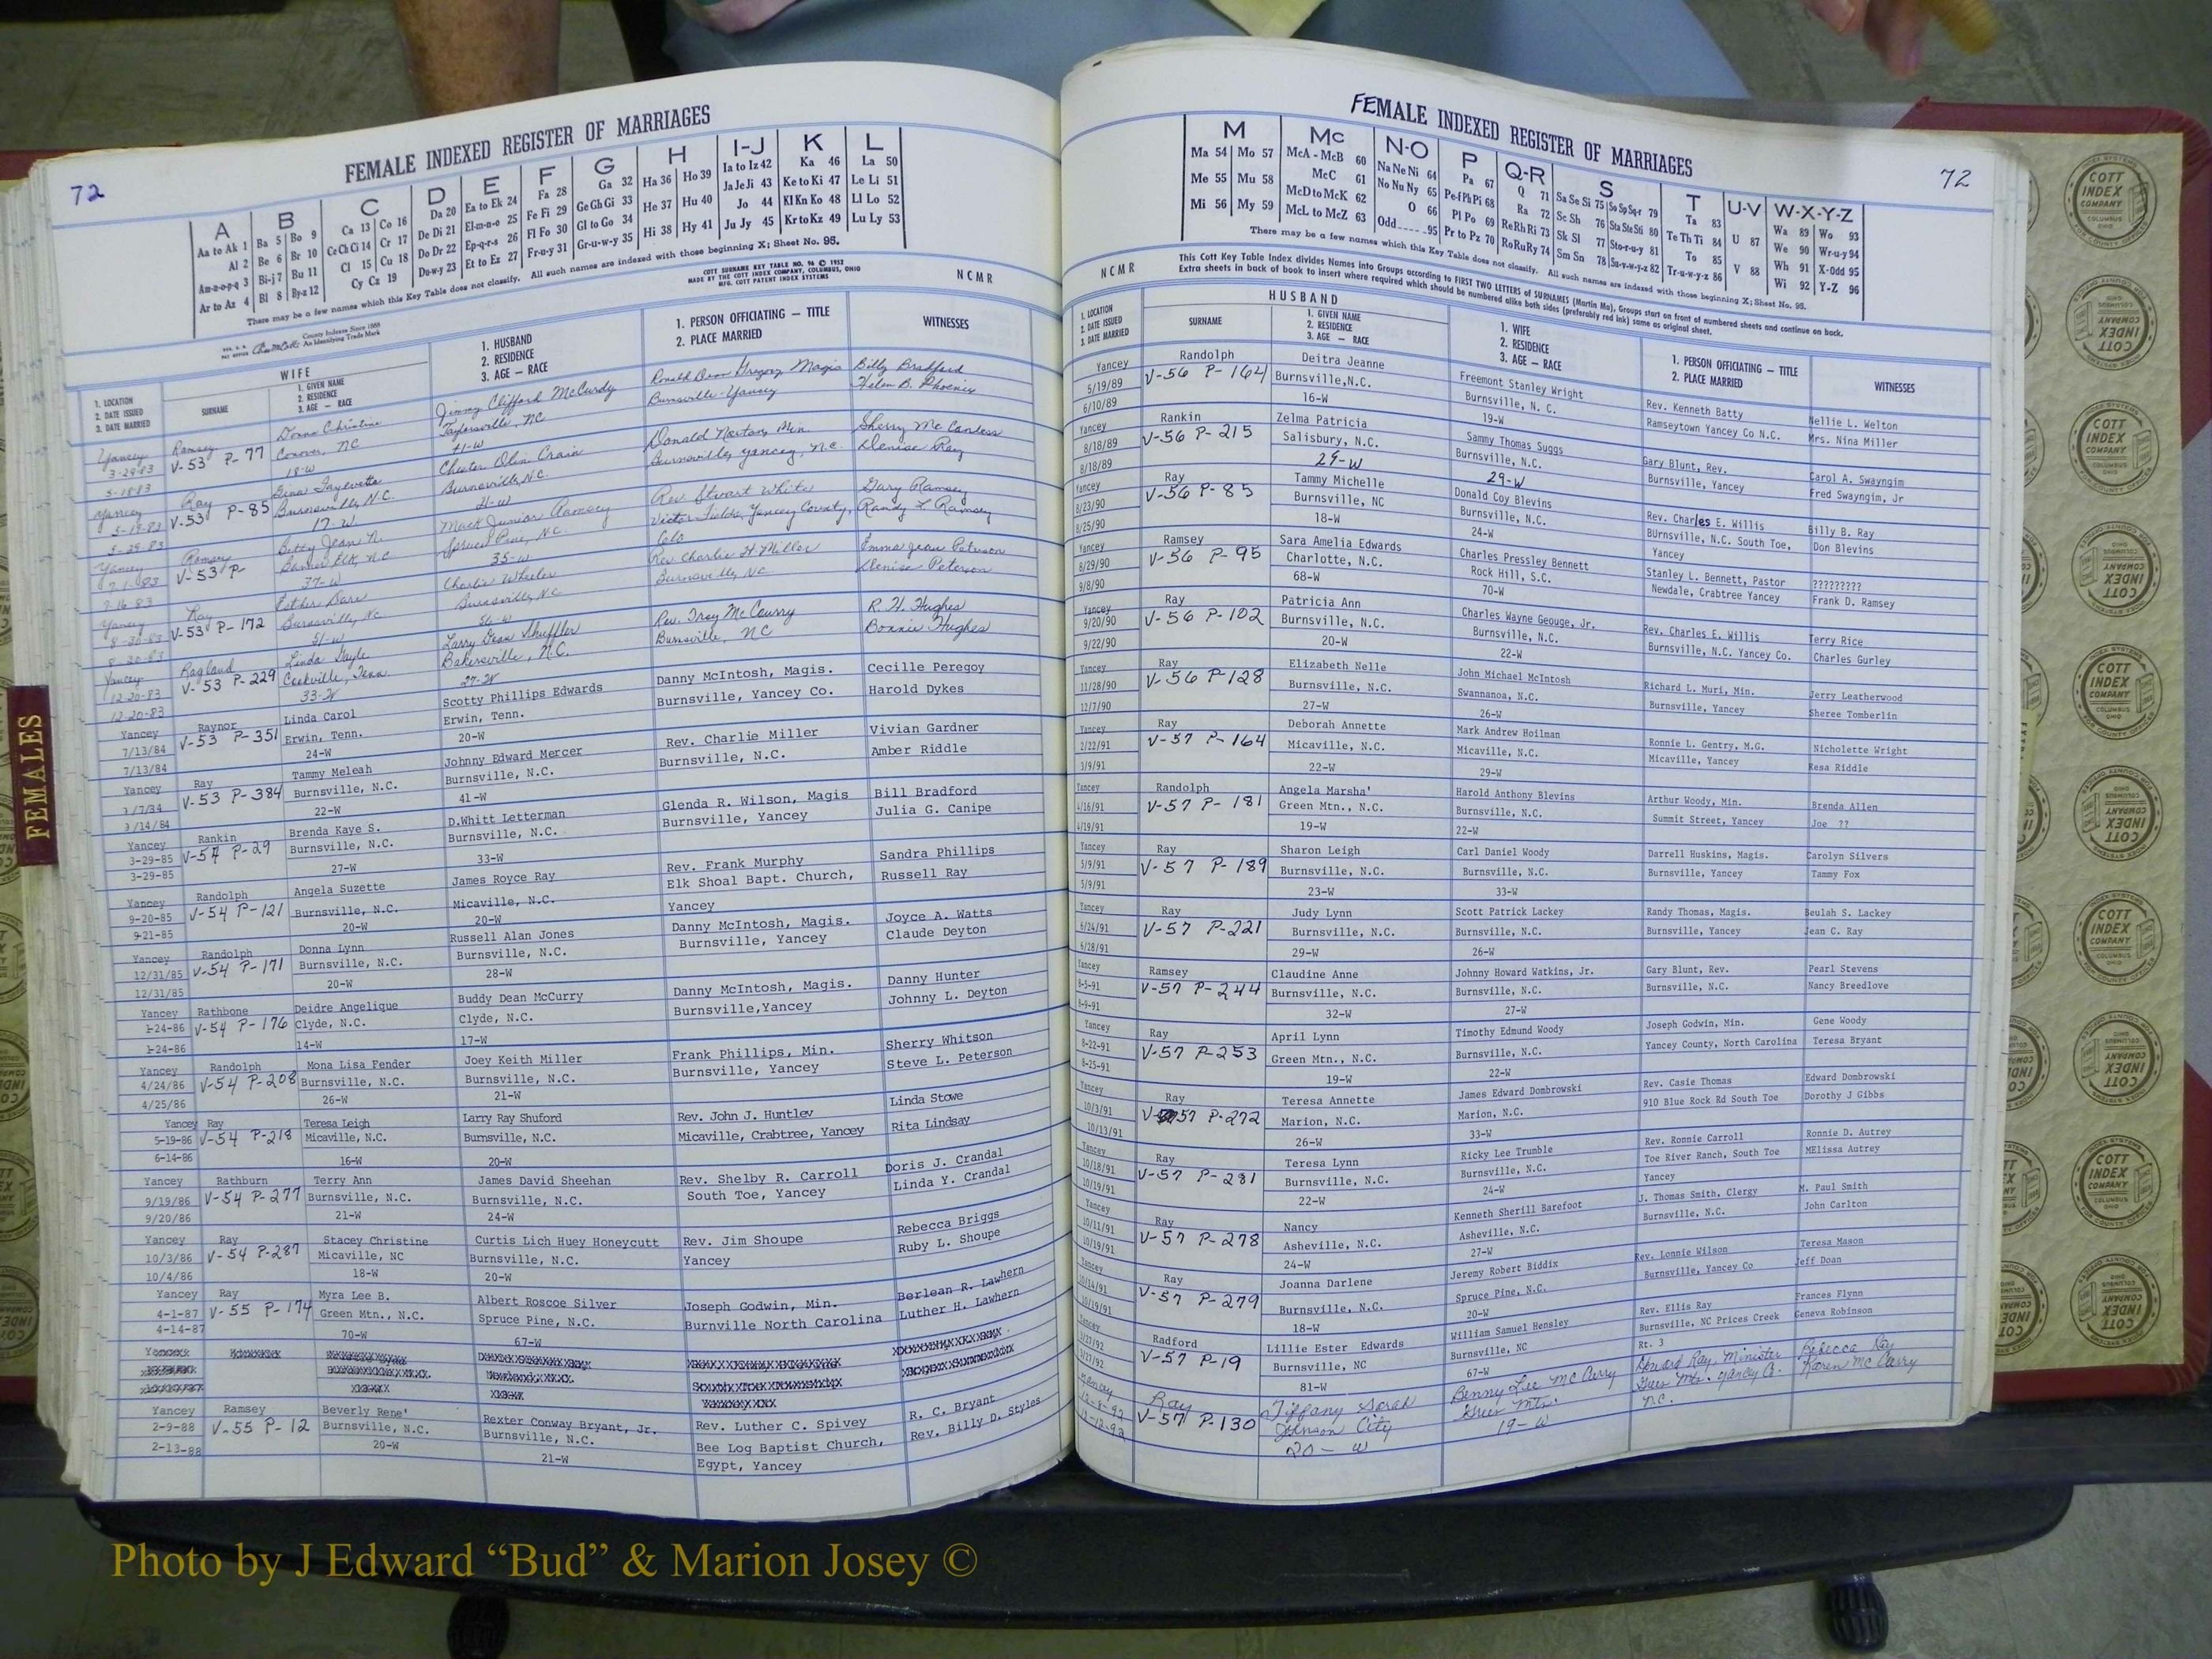 FEMALE INDEXED REGISTER OF MARRIAGES
72
A B C D E F G H I-J K L
Aa to Ak 1 Ba 5 Bo 9 Ca 13 Co 16 Da 20 Ea to Ek 24 Fa 28 Ga 32 Ha 36 Ho 39 Ia to Iz 42 Ka 46 La 50
Al 2 Be 6 Br 10 Ce Ch Ci 14 Cr 17 De Di 21 El-m-n-o 25 Fe Fi 29 Ge Gh Gi 33 He 37 Hu 40 Ja Je Ji 43 Ke to Ki 47 Le Li 51
Am-n-o-p-q 3 Bi-j 7 Bu 11 Cl 15 Cu 18 Do Dr 22 Ep-q-r-s 26 Fl Fo 30 Gl to Go 34 Hi 38 Hy 41 Jo 44 Kl Kn Ko 48 Ll Lo 52
Ar to Az 4 Bl 8 By-z 12 Cy Cz 19 Du-w-y 23 Et to Ez 27 Fr-u-y 31 Gr-u-w-y 35 Ju Jy 45 Kr to Kz 49 Lu Ly 53
There may be a few names which this Key Table does not classify. All such names are indexed with those beginning X; Sheet No. 95.
COTT SURNAME KEY TABLE NO. 96 © 1952
MADE BY THE COTT INDEX COMPANY, COLUMBUS, OHIO
MFG. COTT PATENT INDEX SYSTEMS
NCMR
County Indexes Since 1888
An Identifying Trade Mark
WIFE
1. LOCATION
2. DATE ISSUED
3. DATE MARRIED
SURNAME
1. GIVEN NAME
2. RESIDENCE
3. AGE — RACE
1. HUSBAND
2. RESIDENCE
3. AGE — RACE
1. PERSON OFFICIATING — TITLE
2. PLACE MARRIED
WITNESSES
Yancey Ramsey Donna Christine Jimmy Clifford McCurdy Ronald Dean Gregory Magis Billy Bradford
3-29-83 V-53 P-77 Conover, NC Taylorsville, NC Burnsville-Yancey Helen B. Phoenix
18-W
Yancey Ray Gina Faylvette Chester Olin Crain Donald Norton, Min Sherry McCanless
V-53 P-85 Burnsville, N.C. Burnsville, N.C. Burnsville, Yancey, N.C. Denise Ray
17-W 21-W
Yancey Ramsey Betty Jean N. Mack Junior Ramsey Rev Stuart White Gary Ramsey
7-1-83 V-53 P- Banner Elk, N.C. Spruce Pine, N.C. Victor Fields, Yancey County, Randy L Ramsey
7-16-83 37-W 35-W Celo
Yancey Ray Esther Dare Charlie Wheeler Rev. Charlie H. Miller Emma Jean Peterson
8-30-83 V-53 P-172 Burnsville, NC Burnsville, NC Burnsville, NC Denise Peterson
8-30-83 51-W
Yancey Ragland Linda Gayle Larry Dean Shuffler Rev. Troy McCurry R. H. Hughes
12-20-83 V-53 P-229 Cookville, Tenn. Bakersville, N.C. Burnsville, NC Bonnie Hughes
12-20-83 33-W 27-W
Yancey Raynor Linda Carol Scotty Phillips Edwards Danny McIntosh, Magis. Cecille Peregoy
7/13/84 V-53 P-351 Erwin, Tenn. Erwin, Tenn. Burnsville, Yancey Co. Harold Dykes
7/13/84 24-W 20-W
Yancey Ray Tammy Meleah Johnny Edward Mercer Rev. Charlie Miller Vivian Gardner
V-53 P-384 Burnsville, N.C. Burnsville, N.C. Burnsville, N.C. Amber Riddle
22-W 41-W
Yancey Rankin Brenda Kaye S. D.Whitt Letterman Glenda R. Wilson, Magis Bill Bradford
3-29-85 V-54 P-29 Burnsville, N.C. Burnsville, N.C. Burnsville, Yancey Julia G. Canipe
3-29-85 27-W 33-W
Yancey Randolph Angela Suzette James Royce Ray Rev. Frank Murphy Sandra Phillips
9-20-85 V-54 P-121 Burnsville, N.C. Micaville, N.C. Elk Shoal Bapt. Church, Russell Ray
9-21-85 20-W 20-W Yancey
Yancey Randolph Donna Lynn Russell Alan Jones Danny McIntosh, Magis. Joyce A. Watts
12/31/85 V-54 P-171 Burnsville, N.C. Burnsville, N.C. Burnsville, Yancey Claude Deyton
12/31/85 20-W 28-W
Yancey Rathbone Deidre Angelique Buddy Dean McCurry Danny McIntosh, Magis. Danny Hunter
1-24-86 V-54 P-176 Clyde, N.C. Clyde, N.C. Burnsville,Yancey Johnny L. Deyton
1-24-86 14-W 17-W
Yancey Randolph Mona Lisa Fender Joey Keith Miller Frank Phillips, Min. Sherry Whitson
4/24/86 V-54 P-208 Burnsville, N.C. Burnsville, N.C. Burnsville, Yancey Steve L. Peterson
4/25/86 26-W 21-W
Yancey Ray Teresa Leigh Larry Ray Shuford Rev. John J. Huntley Linda Stowe
5-19-86 V-54 P-218 Micaville, N.C. Burnsville, N.C. Micaville, Crabtree, Yancey Rita Lindsay
6-14-86 16-W 20-W
Yancey Rathburn Terry Ann James David Sheehan Rev. Shelby R. Carroll Doris J. Crandal
9/19/86 V-54 P-277 Burnsville, N.C. Burnsville, N.C. South Toe, Yancey Linda Y. Crandal
9/20/86 21-W 24-W
Yancey Ray Stacey Christine Curtis Lich Huey Honeycutt Rev. Jim Shoupe Rebecca Briggs
10/3/86 V-54 P-287 Micaville, NC Burnsville, N.C. Yancey Ruby L. Shoupe
10/4/86 18-W 20-W
Yancey Ray Myra Lee B. Albert Roscoe Silver Joseph Godwin, Min. Berlean R. Lawhern
4-1-87 V-55 P-174 Green Mtn., N.C. Spruce Pine, N.C. Burnville North Carolina Luther H. Lawhern
4-14-87 70-W 67-W
Yancey Ramsey Beverly Rene' Rexter Conway Bryant, Jr. Rev. Luther C. Spivey R. C. Bryant
2-9-88 V-55 P-12 Burnsville, N.C. Burnsville, N.C. Bee Log Baptist Church, Rev. Billy D. Styles
2-13-88 20-W 21-W Egypt, Yancey
FEMALE INDEXED REGISTER OF MARRIAGES
72
M Mc N-O P Q-R S T U-V W-X-Y-Z
Ma 54 Mo 57 McA - McB 60 Na Ne Ni 64 Pa 67 Q 71 Sa Se Si 75 So Sp Sq-r 79 Ta 83 U 87 Wa 89 Wo 93
Me 55 Mu 58 McC 61 No Nu Ny 65 Pe-f Ph Pi 68 Ra 72 Sc Sh 76 Sta Ste Sti 80 Te Th Ti 84 V 88 We 90 Wr-u-y 94
Mi 56 My 59 McD to McK 62 O 66 Pl Po 69 Re Rh Ri 73 Sk Sl 77 Sto-r-u-y 81 To 85 Wh 91 X-Odd 95
McL to McZ 63 Odd 95 Pr to Pz 70 Ro Ru Ry 74 Sm Sn 78 Su-v-w-y-z 82 Tr-u-w-y-z 86 Wi 92 Y-Z 96
There may be a few names which this Key Table does not classify. All such names are indexed with those beginning X; Sheet No. 95.
NCMR
This Cott Key Table Index divides Names into Groups according to FIRST TWO LETTERS of SURNAMES (Martin Ma), Groups start on front of numbered sheets and continue on back.
Extra sheets in back of book to insert where required which should be numbered alike both sides (preferably red ink) same as original sheet.
HUSBAND
1. LOCATION
2. DATE ISSUED
3. DATE MARRIED
SURNAME
1. GIVEN NAME
2. RESIDENCE
3. AGE — RACE
1. WIFE
2. RESIDENCE
3. AGE — RACE
1. PERSON OFFICIATING — TITLE
2. PLACE MARRIED
WITNESSES
Yancey Randolph Deitra Jeanne Freemont Stanley Wright Rev. Kenneth Batty Nellie L. Welton
5/19/89 V-56 P-164 Burnsville,N.C. Burnsville, N. C. Ramseytown Yancey Co N.C. Mrs. Nina Miller
6/10/89 16-W 19-W
Yancey Rankin Zelma Patricia Sammy Thomas Suggs Gary Blunt, Rev. Carol A. Swayngim
8/18/89 V-56 P-215 Salisbury, N.C. Burnsville, N.C. Burnsville, Yancey Fred Swayngim, Jr
8/18/89 29-W 29-W
Yancey Ray Tammy Michelle Donald Coy Blevins Rev. Charles E. Willis Billy B. Ray
8/23/90 V-56 P-85 Burnsville, NC Burnsville, N.C. Burnsville, N.C. South Toe, Don Blevins
8/25/90 18-W 24-W Yancey
Yancey Ramsey Sara Amelia Edwards Charles Pressley Bennett Stanley L. Bennett, Pastor ?????????
8/29/90 V-56 P-95 Charlotte, N.C. Rock Hill, S.C. Newdale, Crabtree Yancey Frank D. Ramsey
9/8/90 68-W 70-W
Yancey Ray Patricia Ann Charles Wayne Geouge, Jr. Rev. Charles E. Willis Terry Rice
9/20/90 V-56 P-102 Burnsville, N.C. Burnsville, N.C. Burnsville, N.C. Yancey Co. Charles Gurley
9/22/90 20-W 22-W
Yancey Ray Elizabeth Nelle John Michael McIntosh Richard L. Muri, Min. Jerry Leatherwood
11/28/90 V-56 P-128 Burnsville, N.C. Swannanoa, N.C. Burnsville, Yancey Sheree Tomberlin
12/7/90 27-W 26-W
Yancey Ray Deborah Annette Mark Andrew Hoilman Ronnie L. Gentry, M.G. Nicholette Wright
2/22/91 V-57 P-164 Micaville, N.C. Micaville, N.C. Micaville, Yancey Resa Riddle
3/9/91 22-W 29-W
Yancey Randolph Angela Marsha' Harold Anthony Blevins Arthur Woody, Min. Brenda Allen
4/16/91 V-57 P-181 Green Mtn., N.C. Burnsville, N.C. Summit Street, Yancey Joe ??
4/19/91 19-W 22-W
Yancey Ray Sharon Leigh Carl Daniel Woody Darrell Huskins, Magis. Carolyn Silvers
5/9/91 V-57 P-189 Burnsville, N.C. Burnsville, N.C. Burnsville, Yancey Tammy Fox
5/9/91 23-W 33-W
Yancey Ray Judy Lynn Scott Patrick Lackey Randy Thomas, Magis. Beulah S. Lackey
6/24/91 V-57 P-221 Burnsville, N.C. Burnsville, N.C. Burnsville, Yancey Jean C. Ray
6/28/91 29-W 26-W
Yancey Ramsey Claudine Anne Johnny Howard Watkins, Jr. Gary Blunt, Rev. Pearl Stevens
8-5-91 V-57 P-244 Burnsville, N.C. Burnsville, N.C. Burnsville, N.C. Nancy Breedlove
8-9-91 32-W 27-W
Yancey Ray April Lynn Timothy Edmund Woody Joseph Godwin, Min. Gene Woody
8-22-91 V-57 P-253 Green Mtn., N.C. Burnsville, N.C. Yancey County, North Carolina Teresa Bryant
8-25-91 19-W 22-W
Yancey Ray Teresa Annette James Edward Dombrowski Rev. Casie Thomas Edward Dombrowski
10/3/91 V-57 P-272 Marion, N.C. Marion, N.C. 910 Blue Rock Rd South Toe Dorothy J Gibbs
10/13/91 26-W 33-W
Yancey Ray Teresa Lynn Ricky Lee Trumble Rev. Ronnie Carroll Ronnie D. Autrey
10/18/91 V-57 P-281 Burnsville, N.C. Burnsville, N.C. Toe River Ranch, South Toe MElissa Autrey
10/19/91 22-W 24-W Yancey
Yancey Ray Nancy Kenneth Sherill Barefoot J. Thomas Smith, Clergy M. Paul Smith
10/11/91 V-57 P-278 Asheville, N.C. Asheville, N.C. Burnsville, N.C. John Carlton
10/19/91 24-W 27-W
Yancey Ray Joanna Darlene Jeremy Robert Biddix Rev. Lonnie Wilson Teresa Mason
10/14/91 V-57 P-279 Burnsville, N.C. Spruce Pine, N.C. Burnsville, Yancey Co Jeff Doan
10/19/91 18-W 20-W
Yancey Radford Lillie Ester Edwards William Samuel Hensley Rev. Ellis Ray Frances Flynn
3/27/92 V-57 P-19 Burnsville, NC Burnsville, NC Burnsville, NC Prices Creek Geneva Robinson
3/27/92 81-W 67-W Rt. 3
Yancey Ray Tiffany Sarah Benny Lee McCurry Edward Ray, Minister Rebecca Ray
12-8-92 V-57 P-130 Johnson City Green Mtn. Green Mtn. Yancey Co. Karen McCurry
12-12-92 20-W 19-W N.C.
FEMALES
COTT INDEX COMPANY COLUMBUS OHIO
Photo by J Edward “Bud” & Marion Josey ©